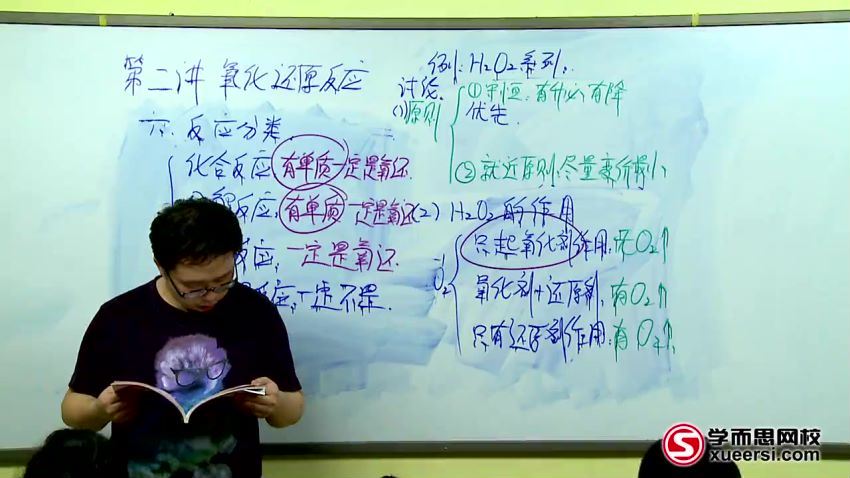 第二讲 氧化还原反应
六. 反应分类
化合反应 有单质一定是氧还.
反应, 有单质 一定是氧还
反应, 一定是氧还.
反应, 一定不是.
例: H₂O₂系列.
讨论
(1)原则
①守恒: 有升必有降
优先.
②就近原则: 尽量变价最小
(2) H₂O₂的作用
-1
O₂
只起氧化剂作用, 无O₂↑
氧化剂+还原剂, 有O₂↑
只有还原剂作用: 有O₂↑
学而思网校
xueersi.com